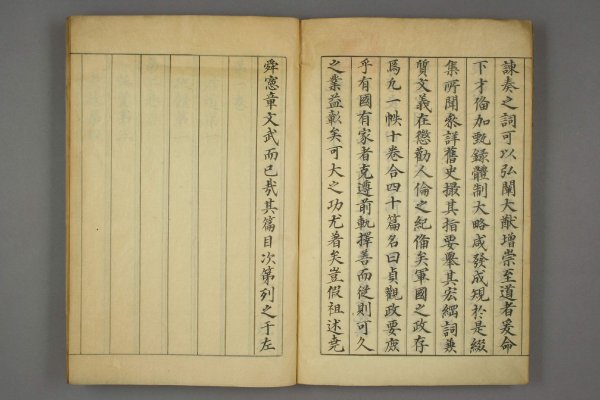 諫奏之詞可以弘闡大猷增崇至道者爰命
下才備加甄録體制大略咸發成規於是綴
集所聞叅詳舊史撮其指要舉其宏綱詞兼
質文義在懲勸人倫之紀備矣軍國之政存
焉凡一帙十卷合四十篇名曰貞觀政要庶
乎有國有家者克遵前軌擇善而從則可久
之業益彰矣可大之功尤著矣豈假祖述堯
舜憲章文武而已哉其篇目次第列之于左